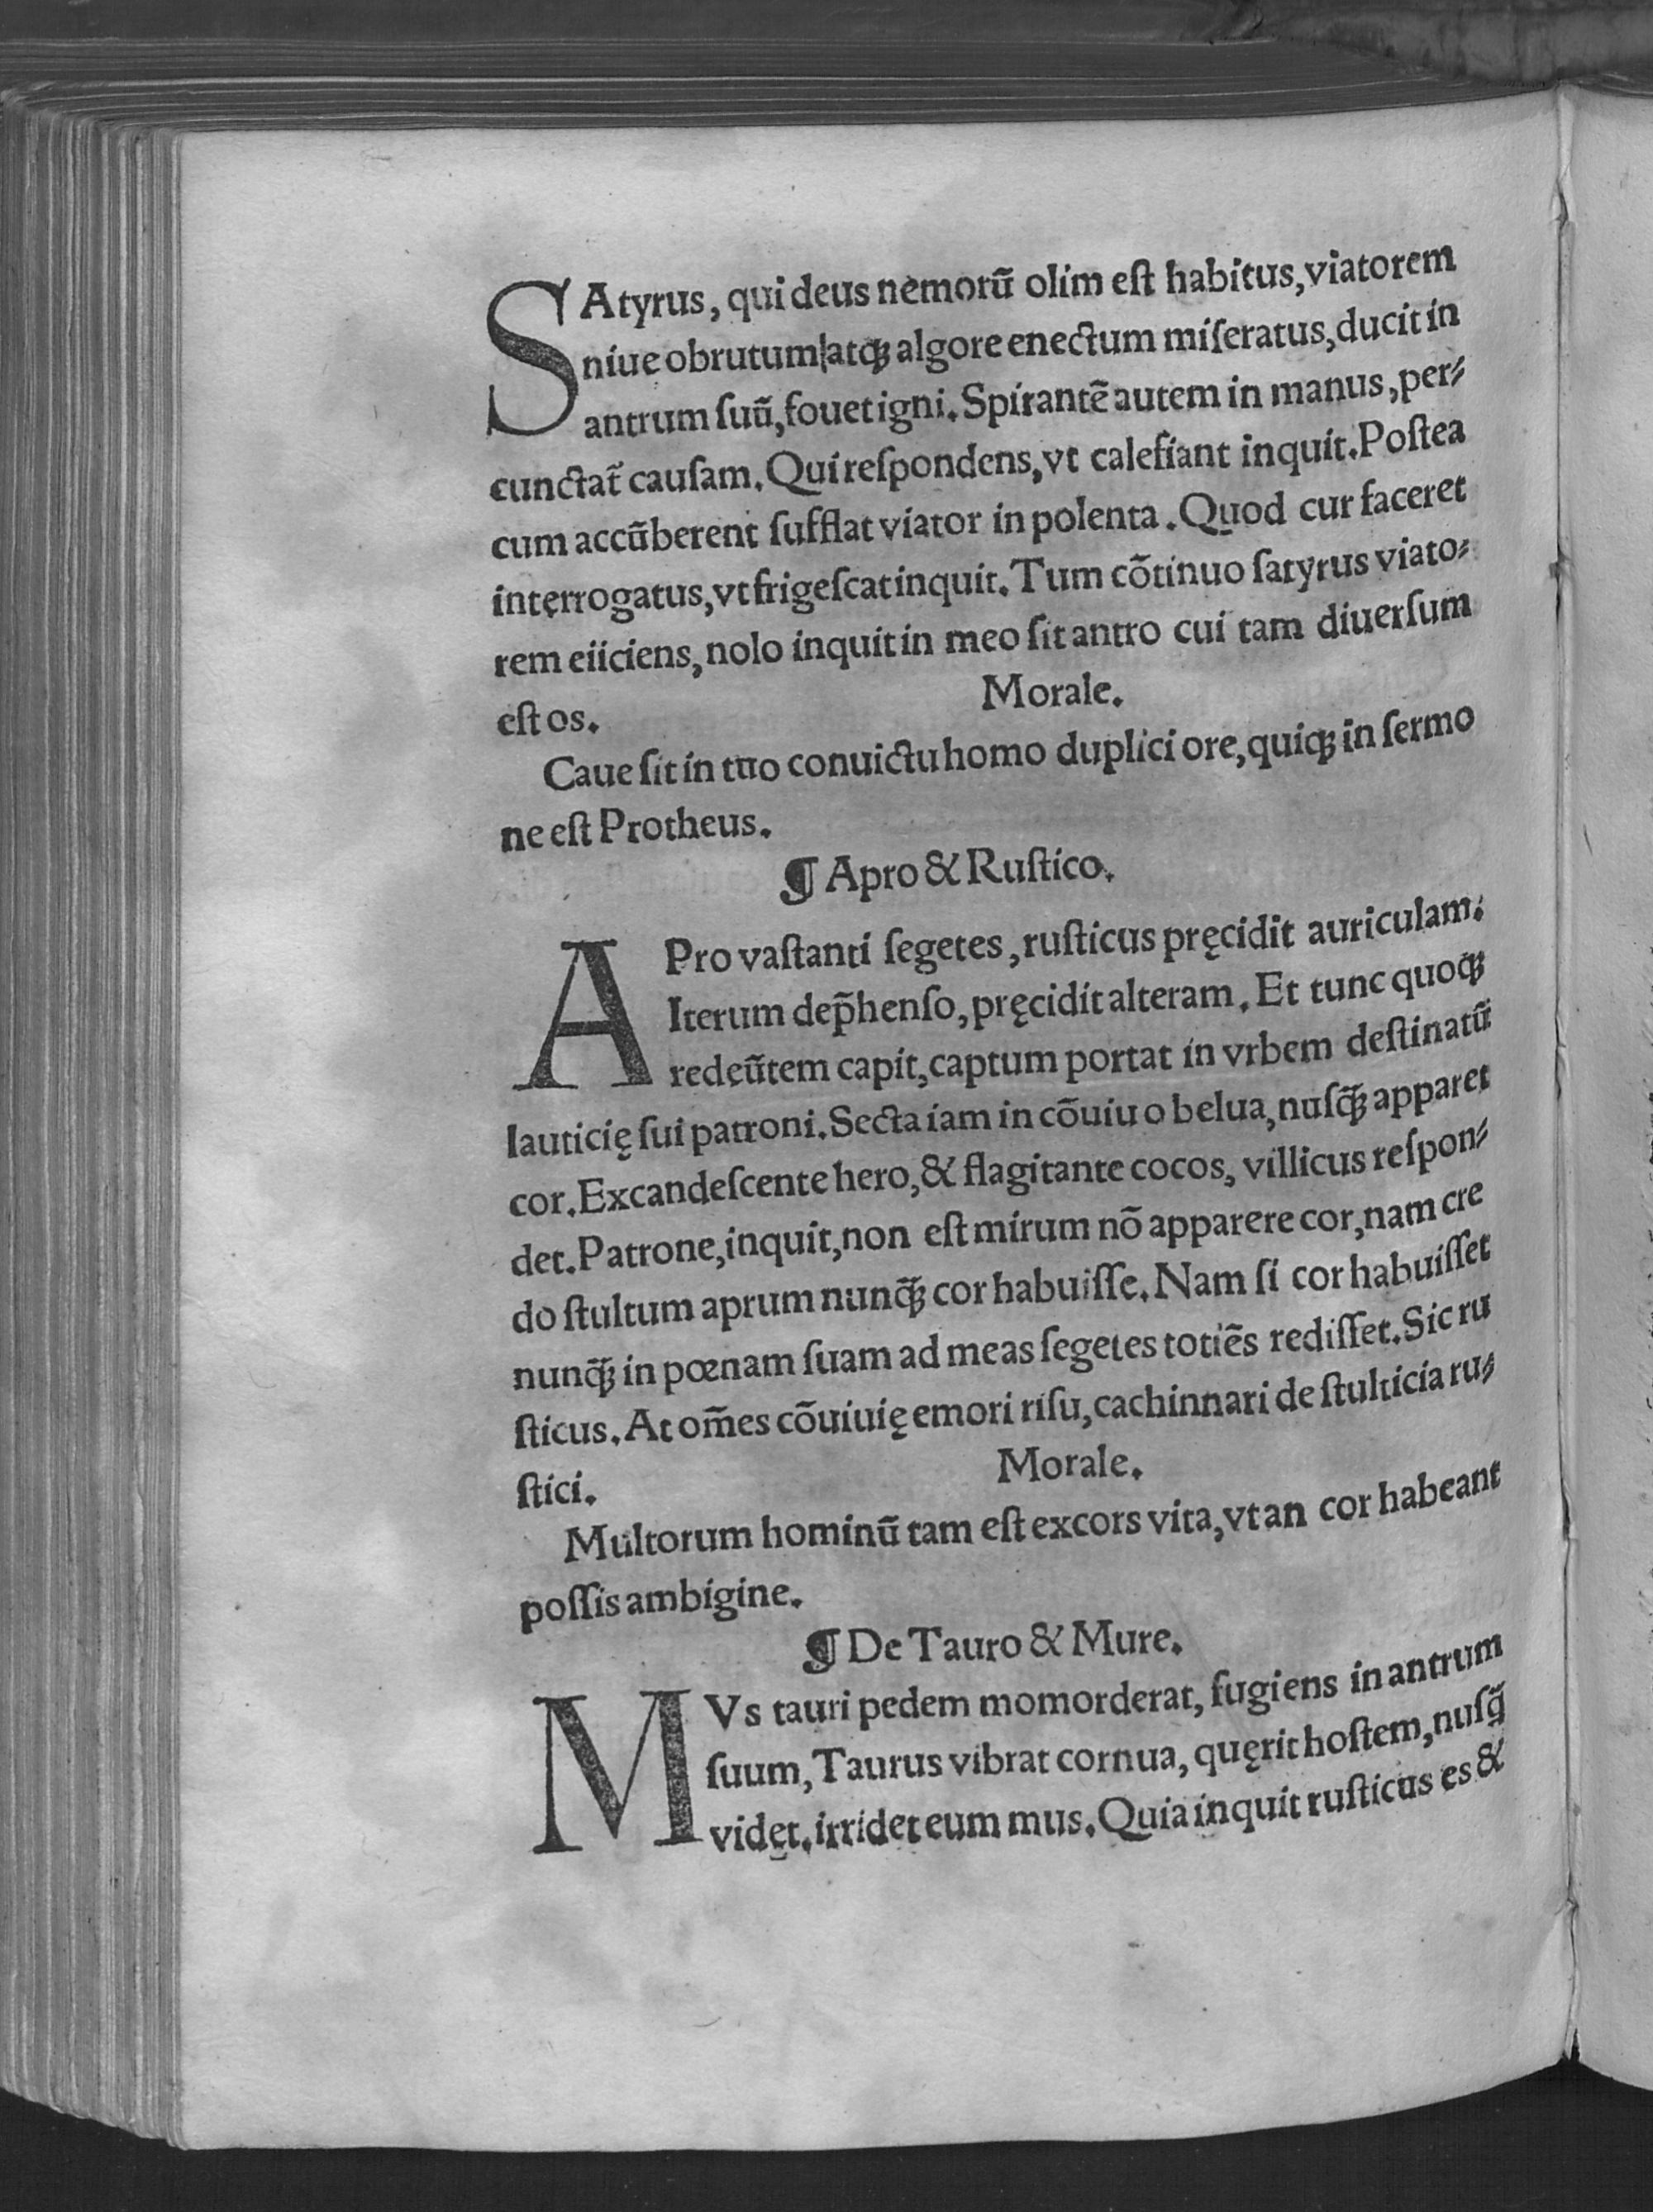 SAtyrus, qui deus nemorũ olim eſt habitus, viatorem
niue obrutum|atqꝫ algore enectum miſeratus, ducit in
antrum ſuũ, fouet igni. Spirantẽ autem in manus, per⸗
cunctat᷑ cauſam. Qui reſpondens, vt calefiant inquit. Poſtea
cum accũberent ſufflat viator in polenta. Quod cur faceret
interrogatus, vt frigeſcat inquit. Tum cõtinuo ſatyrus viato⸗
rem eiiciens, nolo inquit in meo ſit antro cui tam diuerſum
eſt os. Morale.
Caue ſit in tuo conuictu homo duplici ore, quiqꝫ in ſermo
ne eſt Protheus.
¶ Apro & Ruſtico.
APro vaſtanti ſegetes, ruſticus pręcidit auriculam.
Iterum dep̃henſo, pręcidit alteram. Et tunc quoqꝫ
redeũtem capit, captum portat in vrbem deſtinatũ
lauticię ſui patroni. Secta iam in cõuiuo belua, nuſq̃ꝫ apparet
cor. Excandeſcente hero, & flagitante cocos, villicus reſpon⸗
det. Patrone, inquit, non eſt mirum nõ apparere cor, nam cre
do ſtultum aprum nunq̃ꝫ cor habuiſſe. Nam ſi cor habuiſſet
nunq̃ꝫ in pœnam ſuam ad meas ſegetes totiẽs rediſſet. Sic ru
ſticus. At om̃es cõuiuię emori riſu, cachinnari de ſtulticia ru⸗
ſtici. Morale.
Multorum hominũ tam eſt excors vita, vt an cor habeant
poſſis ambigine.
¶ De Tauro & Mure.
MVs tauri pedem momorderat, fugiens in antrum
ſuum, Taurus vibrat cornua, quęrit hoſtem, nuſq̃
videt. irridet eum mus. Quia inquit ruſticus es &